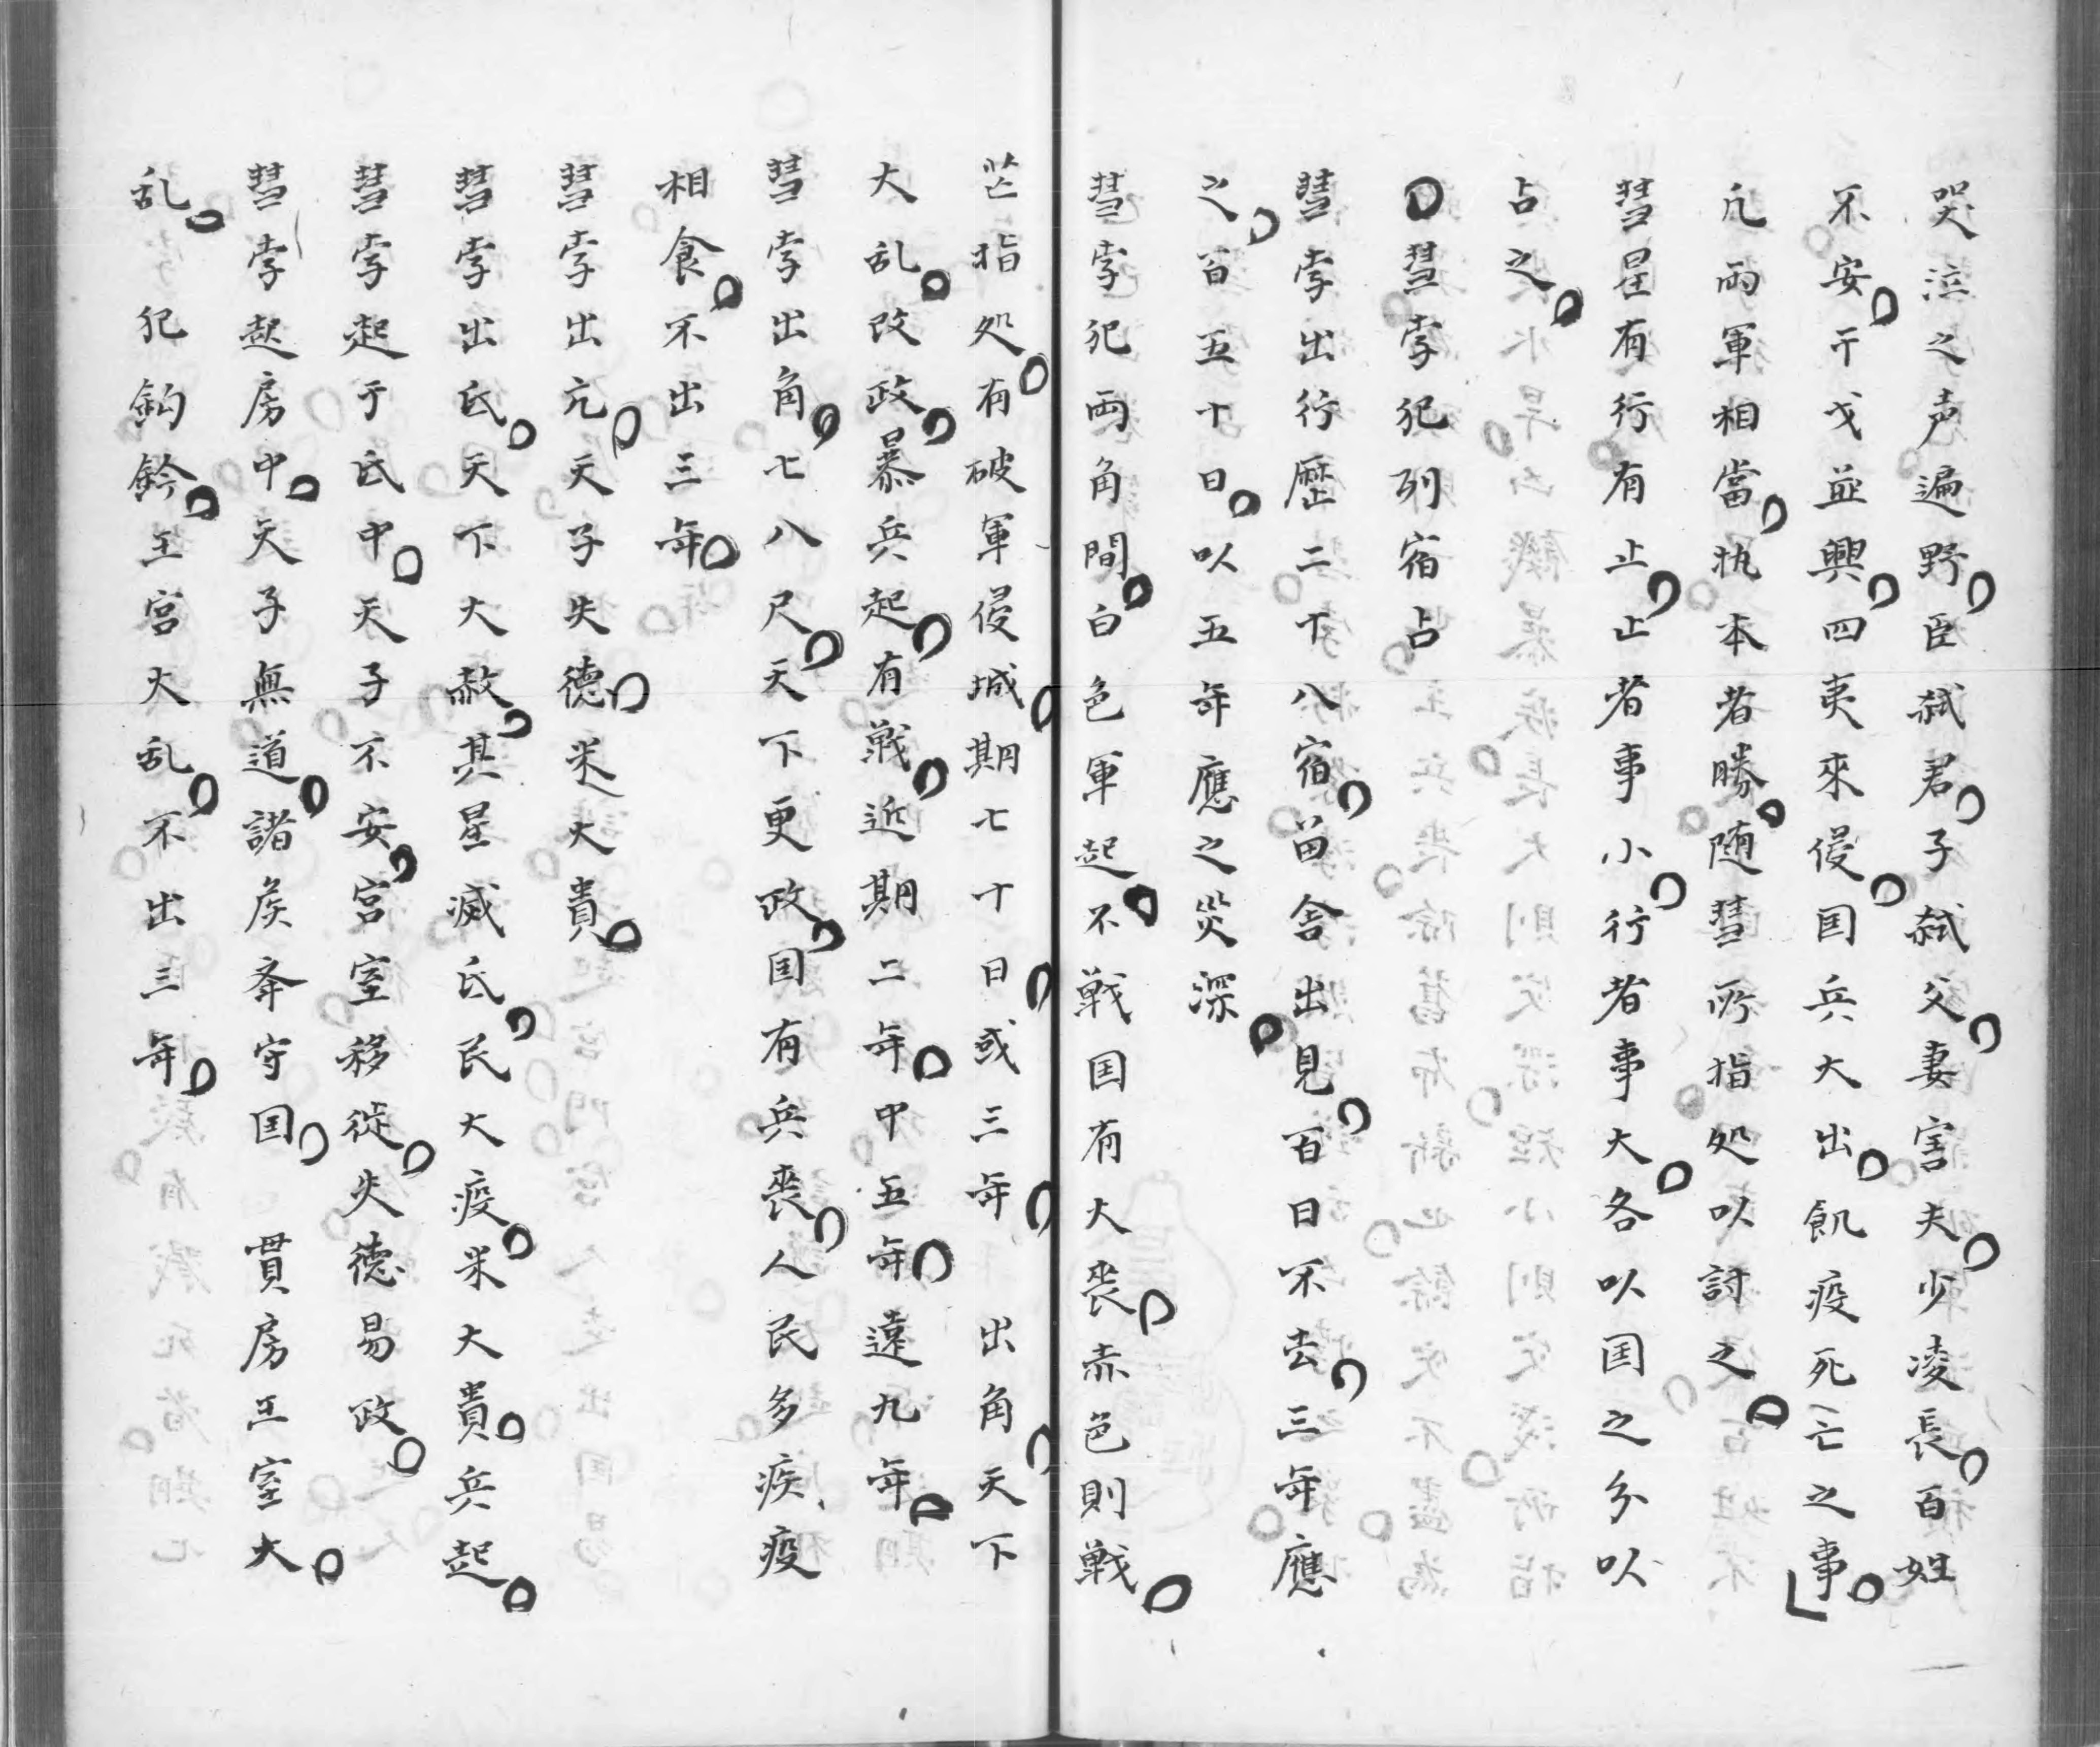 哭泣之声遍野臣弑君子弑父妻害夫少凌長百姓
不安干戈並興四夷來侵国兵大出飢疫死亡之事
凢両軍相當执本者勝随彗所指処以討之
彗星有行有止止者事小行者事大各以国之分以
占之
彗孛犯列宿占
彗孛出行歴二十八宿留舎出見百日不去三年應
之百五十日以五年應之災深
彗孛犯両角間白色軍起不戦国有大喪赤色則戦
芒指処有破軍侵城期七十日或三年 出角天下
大乱改政暴兵起有戦近期二年中五年遠九年
彗孛出角七八尺天下更政国有兵喪人民多疾疫
相食不出三年
彗孛出亢天子失德米大貴
彗孛出氐天下大赦其星滅氐民大疫米大貴兵起
彗孛起于氐中天子不安宮室移徙失德易政
彗孛起房中天子無道諸侯争守国 貫房王室大
乱 犯鈎鈐王宮大乱不出三年